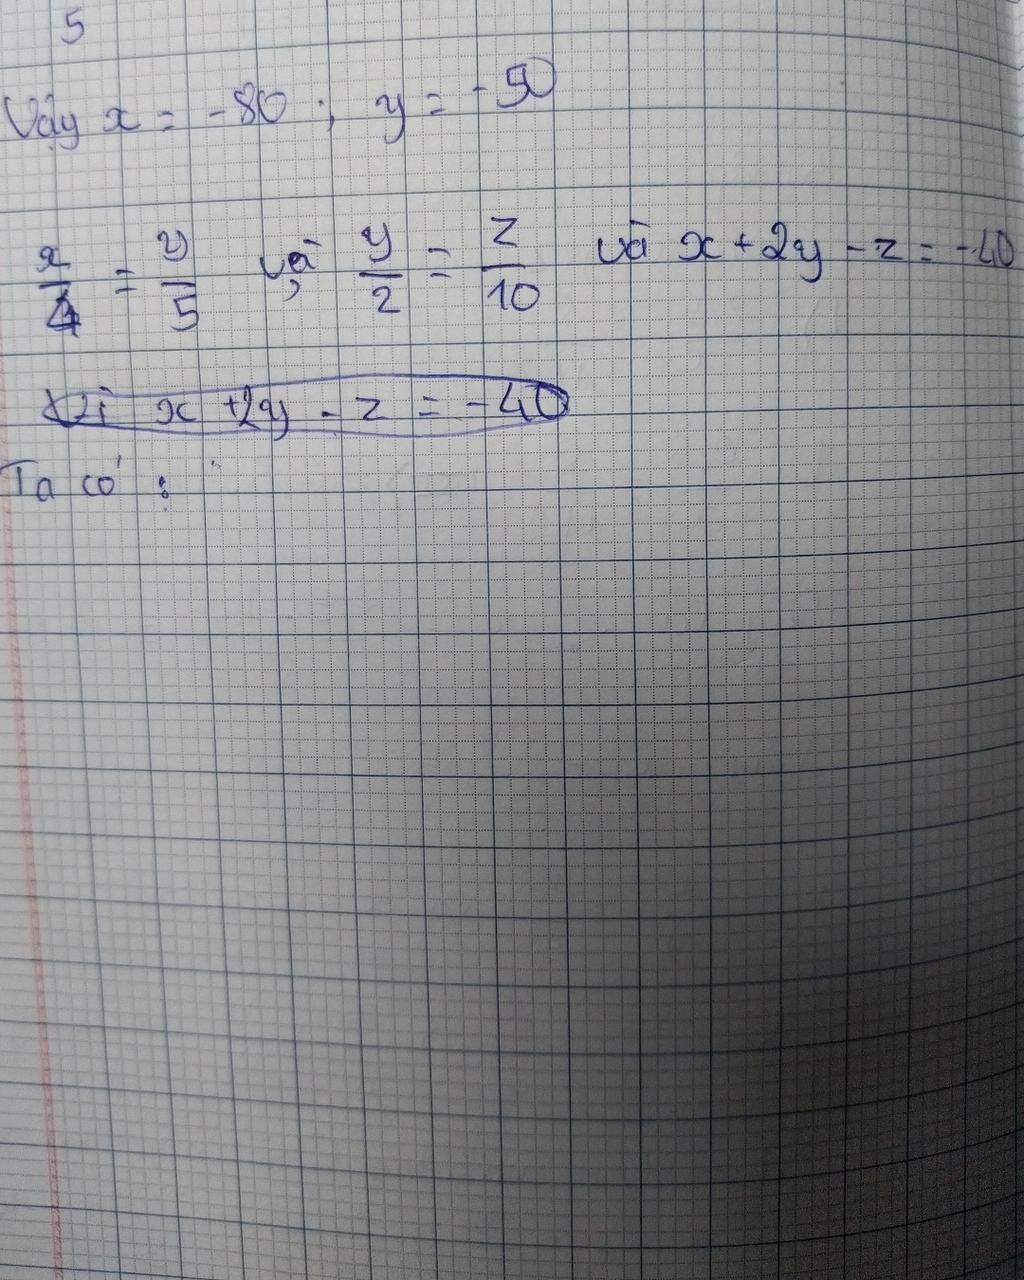 5
Vậy x = -80 ; y = -50
x/4 = y/5 và, y/2 = z/10 và x + 2y - z = -40
vì x + 2y - z = -40
Ta có :